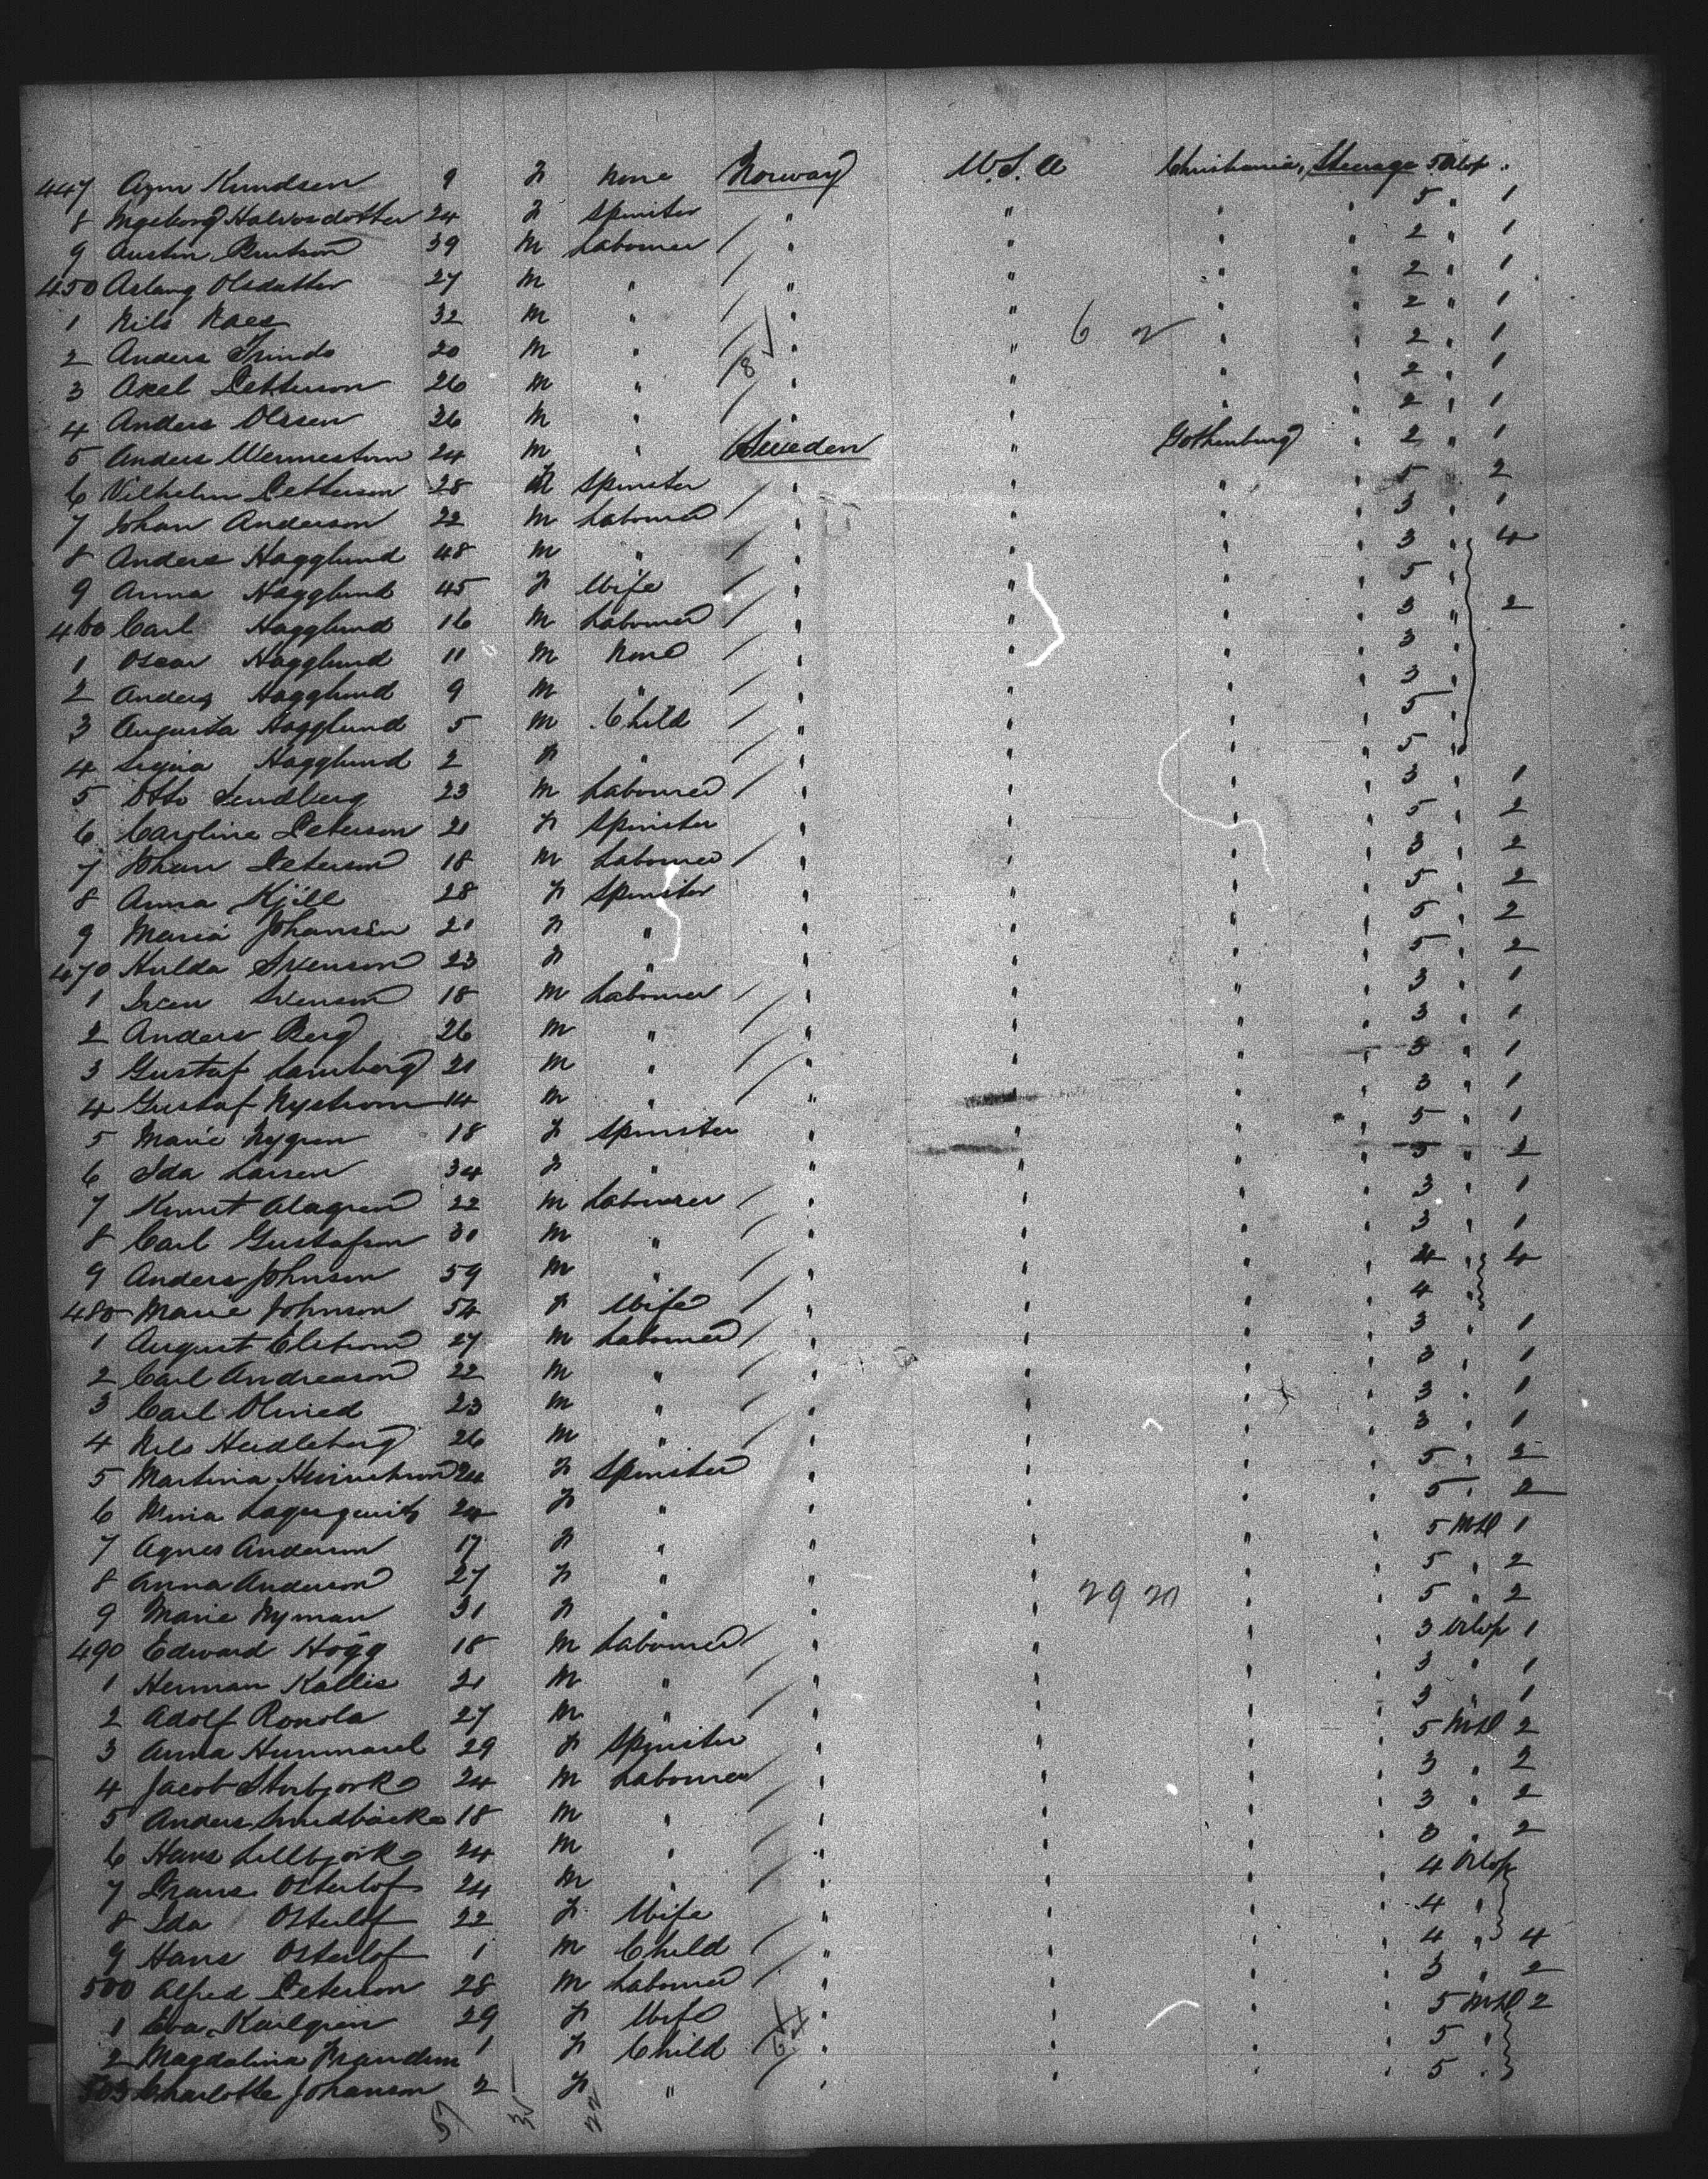 447 Knudsen 9 F None Norway U.S.A Christiania, Steerage 5 Orlop "
8 Ingeborg Halvosdotter 24 F Spinster " " " " 5 " 1
9 Austin 39 M Labourer " " " " 2 " 1
450 Aslaug Olsdatter 27 M " " " " " 2 " 1
1 Nils Naes 32 M " " " " " 2 " 1
2 Anders 20 M " " " 6 2 " " 2 " 1
3 Axel Petterson 26 M " 18 " " " " 2 " 1
4 Anders Olssen 26 M " " " " " 2 " 1
5 Anders Wermestrom 24 M " Sweden " Gothenburg " 2 " 1
6 Vilhelm Petterson 28 Spinster " " " " 5 " 2
7 Johan Anderson 22 M Labourer " " " " 3 " 1
8 Anders Hagglund 48 M " " " " " 3 " 4
9 Anna Hagglund 45 F Wife " " " " 5 "
460 Carl Hagglund 16 M Labourer " " " " 3 " 2
1 Oscar Hagglund 11 M None " " " " 3
2 Anders Hagglund 9 M " " " " " 3 "
3 Augusta Hagglund 5 M Child " " " " 5
4 Hagglund 2 F " " " " " 5 "
5 Otto Lindberg 23 M Labourer " " " " 3 " 1
6 Caroline Peterson 21 F Spinster " " " " 5 " 2
7 Johan Peterson 18 M Labourer " " " " 3 " 2
8 Anna Kjell 28 F Spinster " " " " 5 " 2
9 Maria Johansen 21 F " " " " " 5 " 2
470 Hulda Svenson 23 F " " " " " 5 " 2
1 Sven Svenson 18 M Labourer " " " " 3 " 1
2 Anders Berg 26 M " " " " " 3 " 1
3 Gustaf 21 M " " " " " 3 " 1
4 Gustaf Nystrom 14 M " " " " " 3 " 1
5 Marie Nygren 18 F Spinster " " " " 5 " 1
6 Ida Larsen 34 F " " " " " 5 " 2
7 22 M Labourer " " " " 3 " 1
8 Carl Gustafson 30 M " " " " " 3 " 1
9 Anders Johnson 59 M " " " " " 4 " 4
480 Marie Johnson 54 F Wife " " " " 4 "
1 August Elstrom 27 M Labourer " " " " 3 " 1
2 Carl Andreason 22 M " " " " " 3 " 1
3 Carl 23 M " " " " " 3 " 1
4 Nils 26 M " " " " " 3 " 1
5 Martina 24 F Spinster " " " " 5 " 2
6 24 F " " " " " 5 " 2
7 Agnes Anderson 17 F " " " " " 5 1
8 Anna Anderson 27 F " " " " " 5 " 2
9 Marie Nyman 31 F " " " 29 20 " " 5 " 2
490 Edward Hogg 18 M Labourer " " " " 3 Orlop 1
1 Herman Kallis 21 M " " " " " 3 " 1
2 Adolf Ronola 27 M " " " " " 3 " 1
3 Anna 29 F Spinster " " " " 5 2
4 Jacob Storbjork 24 M Labourer " " " " 3 " 2
5 Anders 18 M " " " " " 3 " 2
6 Hans Lillbjork 24 M " " " " " 3 " 2
7 Frans Osterlof 24 M " " " " " 4 Orlop
8 Ida Osterlof 22 F Wife " " " " 4 "
9 Hans Osterlof 1 M Child " " " " 4 " 4
500 Alfred Peterson 28 M Labourer " " " " 3 " 2
1 Eva Karlgren 29 F Wife " " " " 5 2
2 Magdalina 1 F Child " " " " 5 "
503 Charlotte Johanson 2 F " " " " " 5 "
57 35 22